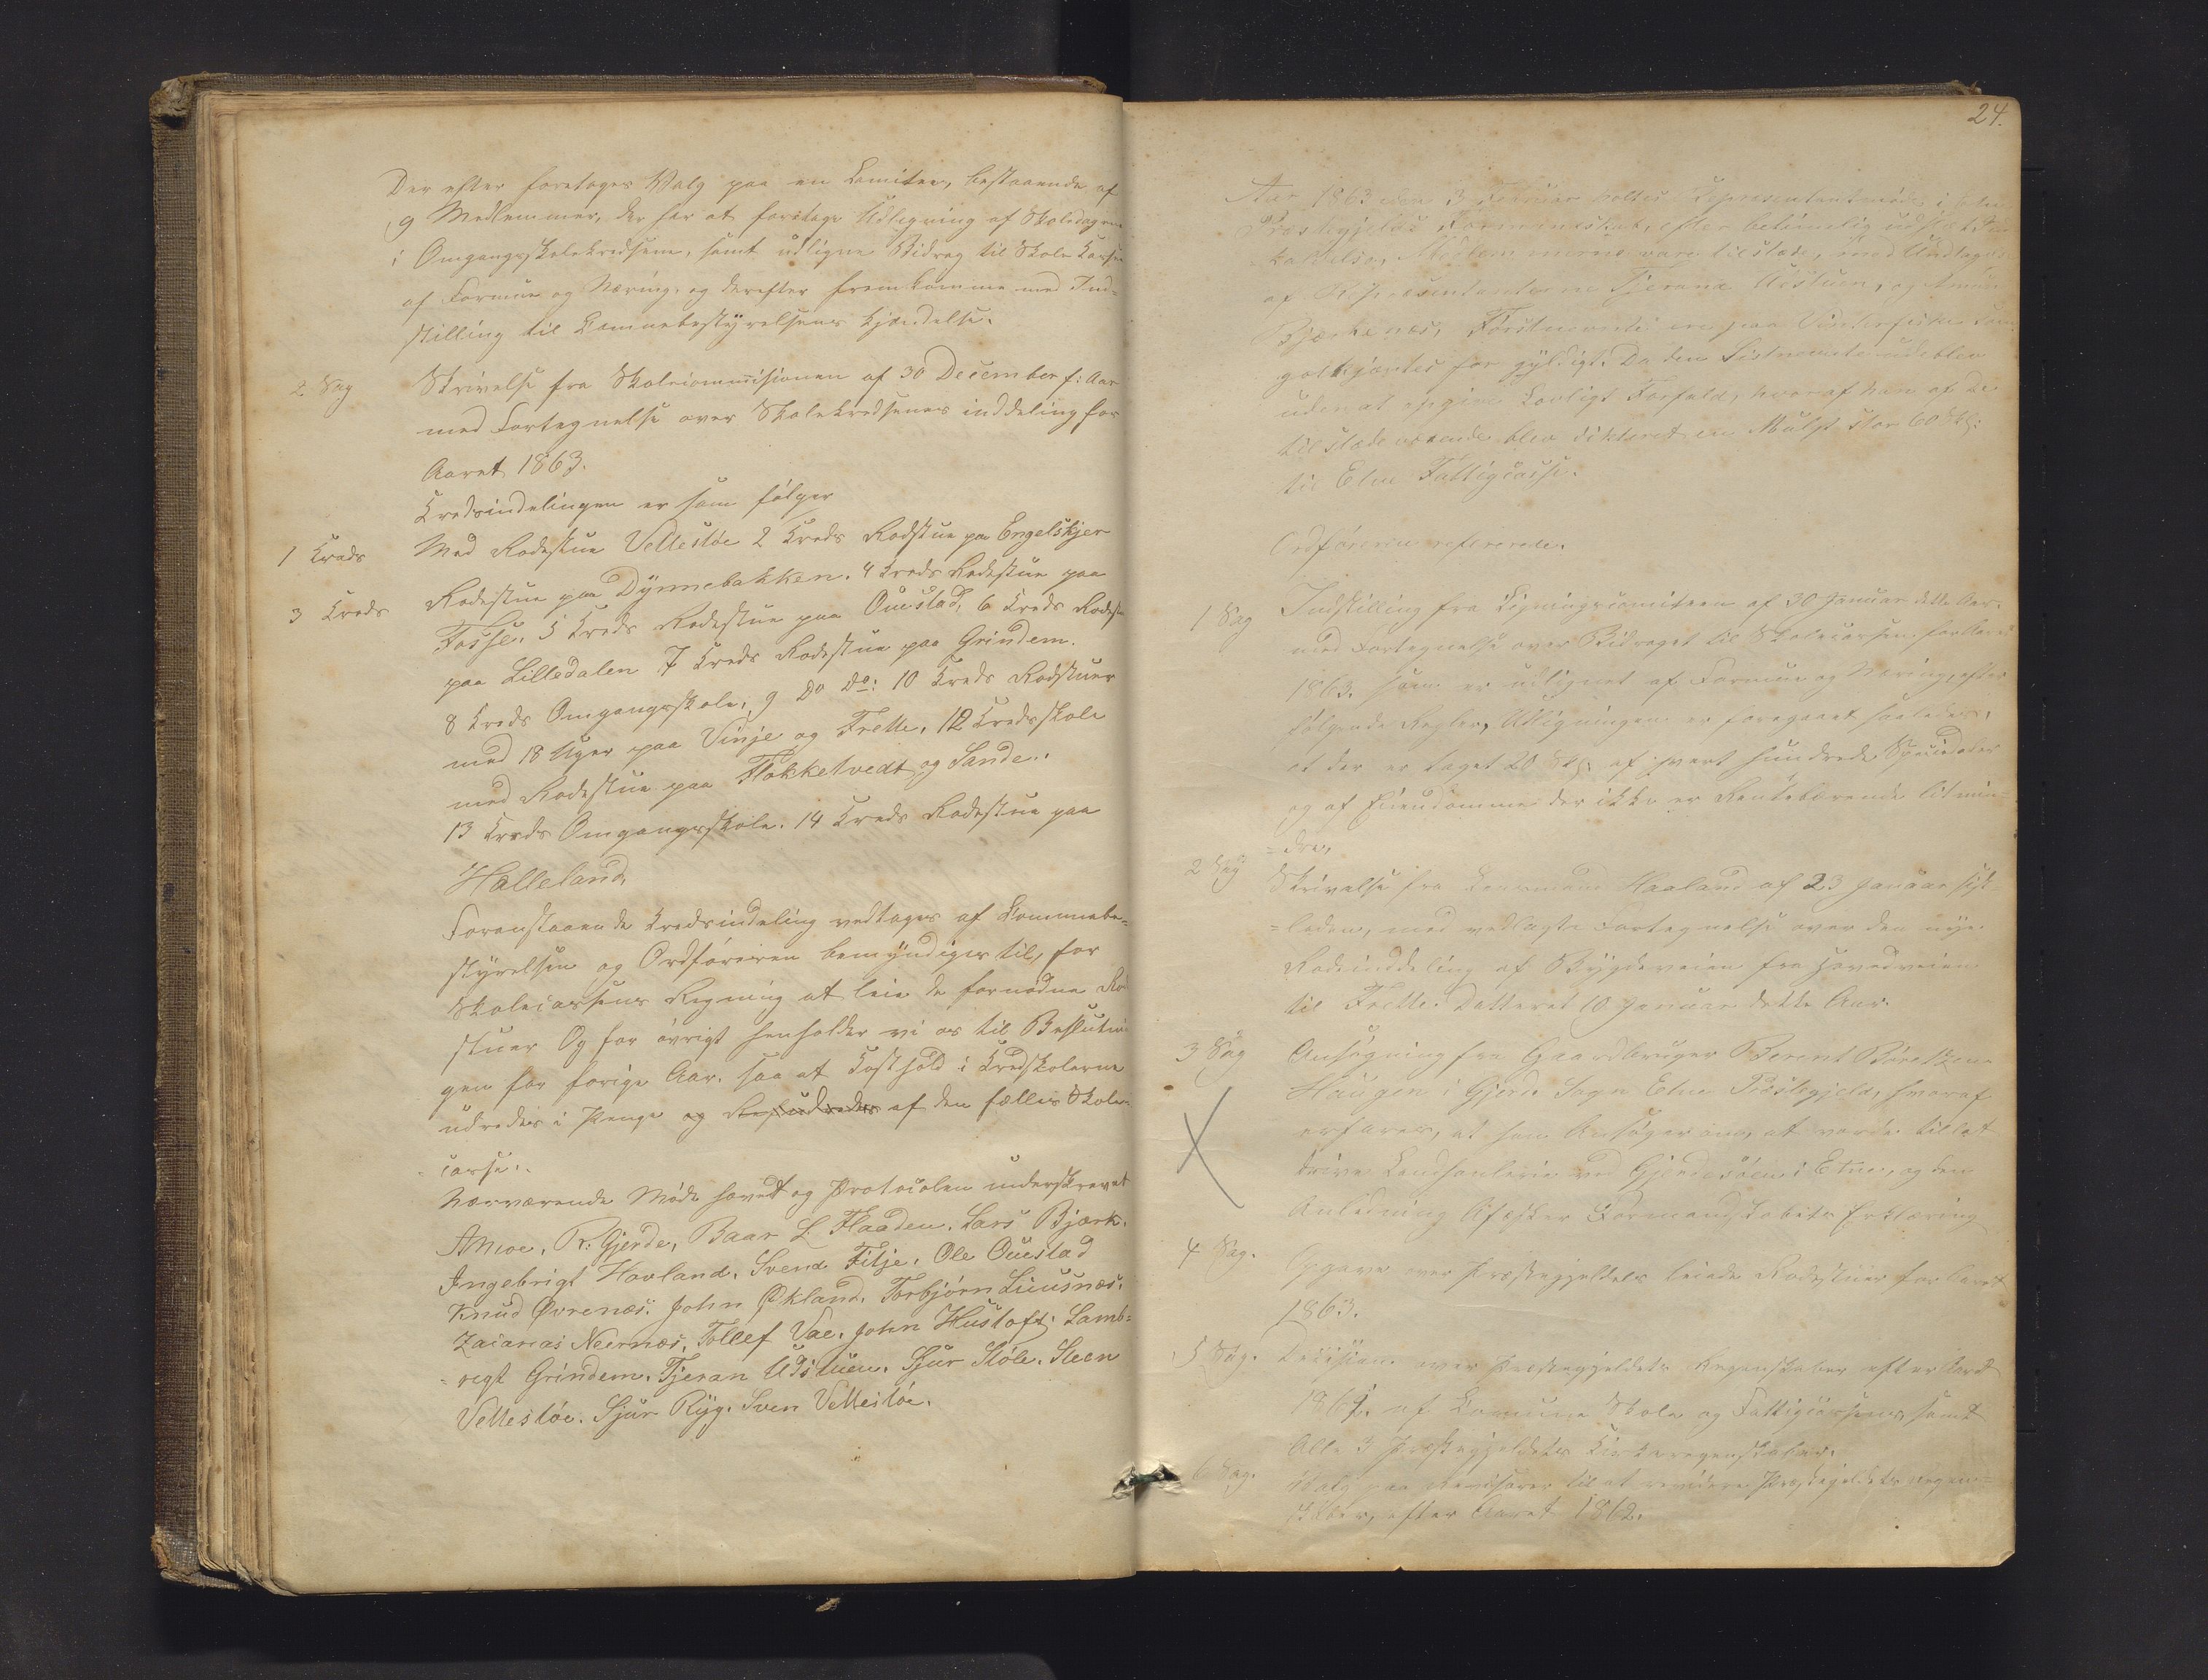 Der efter foretages Valg paa en Comitee, bestaaende af
9 Medlemmer, der har at foretage Udligning af Skoledagene
i Omgangsskolekredsene, samt udligne Bidrag til Skole Cassen
af Formue og Næring, og derefter fremkomme med Ind=
stilling til Comnebestyrelsens Kjendelse.
2 Sag Skrivelse fra Skolecommisionen af 30 December f: Aar
med Fortegnelse over Skolekredsenes inddeling for
Aaret 1863.
Kredsindelingen er som følger
1 Kreds Med Rodestue Vettestøe 2 Kreds Rodstue paa Engelskjer
3 Kreds Rodestue paa Dynnebakken. 4 Kreds Rodestue paa
Fosse. 5 Kreds Rodestue paa Ouestad, 6 Kreds Rodest
paa Lilledalen 7 Kreds Rodestue paa Grindem.
8 Kreds Omgangsskole, 9 Do Do: 10 Kreds Rodstuer
med 18 Uger paa Vinje og Frette, 12 Kredsskole
med Rodestue paa Flokketvedt og Sande.
13 Kreds Omgangsskole. 14 Kreds Rodestue paa
Halleland.
Foranstaaende Kredsindeling vedtages af Commebe=
styrelsen og Ordføreren bemyndiges til, for
Skolecassens Regning at leie de fornødne Ro
stuer Og for øvrigt henholder vi os til Beslutnin
gen for forige Aar. saa at Kosthold i Kredskolerne
udredes i Penge og af den fælles Skole=
casse.
Nærværende Møde hævet og Protocolen underskrevet
AMoe, R. Gjerde, Baar L. Flaaden. Lars Bjørk.
Ingebrigt Hovland. Svend Fitje. Ole Ouestad
Knud Øvrenæs. John Økland. Torbjørn Liusnæs.
Zacarias Neernæs, Tollef Vae. John Hustoft. Lamb=
=regt Grindem. Tjeran Udstuen. Sjur Støle. Steen
Vettestøe. Sjur Ryg. Sven Vettestøe.
24.
Aar 1863 den 3 Februar holtes Representantmøde i Etne
Præstegjelds Formandskab, efter betimelig udstedt Ind
kaldelse, Medlemmerne vare tilstæde, med Undtagelse
af Repræsentanterne Tjerand Udstuen, og
Bjørkenæs, Førstnævnte er paa Vinterfiske som
godtkjøntes for gyldigt. Da den Sistnævnte udeblev
uden at opgive Lovligt Forfald, hvoraf han af de
tilstædeværende blev dikteret en Mulgt stor 60 Sk:
til Etne Fattigcasse.
Ordføreren refererede.
1 Sag Indstilling fra Ligningscomiteen af 30 Januar dette Aar.
med Fortegnelse over Bidraget til Skolecassen for Aaret
1863. som er udlignet af Formue og Næring, efter
følgende Regler, Udligningen er foregaaet saaledes,
at der er taget 20 Sk. af hvert hundrede Speciedaler
og af Eiendomme der ikke er Rentebærende lit min=
=dre,
2 Sag Skrivelse fra Lensmand Haaland af 23 Januar sist
=leden, med vedlagte Fortegnelse over den nye
Rodeinddeling af Bygdeveien fra Hovedveien
til Frette. Datteret 10 Januar dette Aar.
3 Sag Ansøgning fra Gaardbruger Berent Børretzen
Haugen i Gjerde Sogn Etne Præstegjeld, hvoraf
erfares, at han Ansøger om, at vorde tillat
drive Landhanleri ved Gjerdesøen i Etne, og den
Anledning Afæsker Formandskabets Erklæring
4 Sag. Opgave over Præstegjeldets leiede Rodestuer for Aaret
1863.
5 Sag. Decision over Præstegjeldets Regenskaber efter Aaret
1861. af Comune Skole og Fattigcassens samt
Alle 3 Præstegjeldets Kirkeregenskaber.
6 Sag. Valg paa Revisorer til at revidere Præstegjeldets regen=
skaber, efter Aaret 1862.